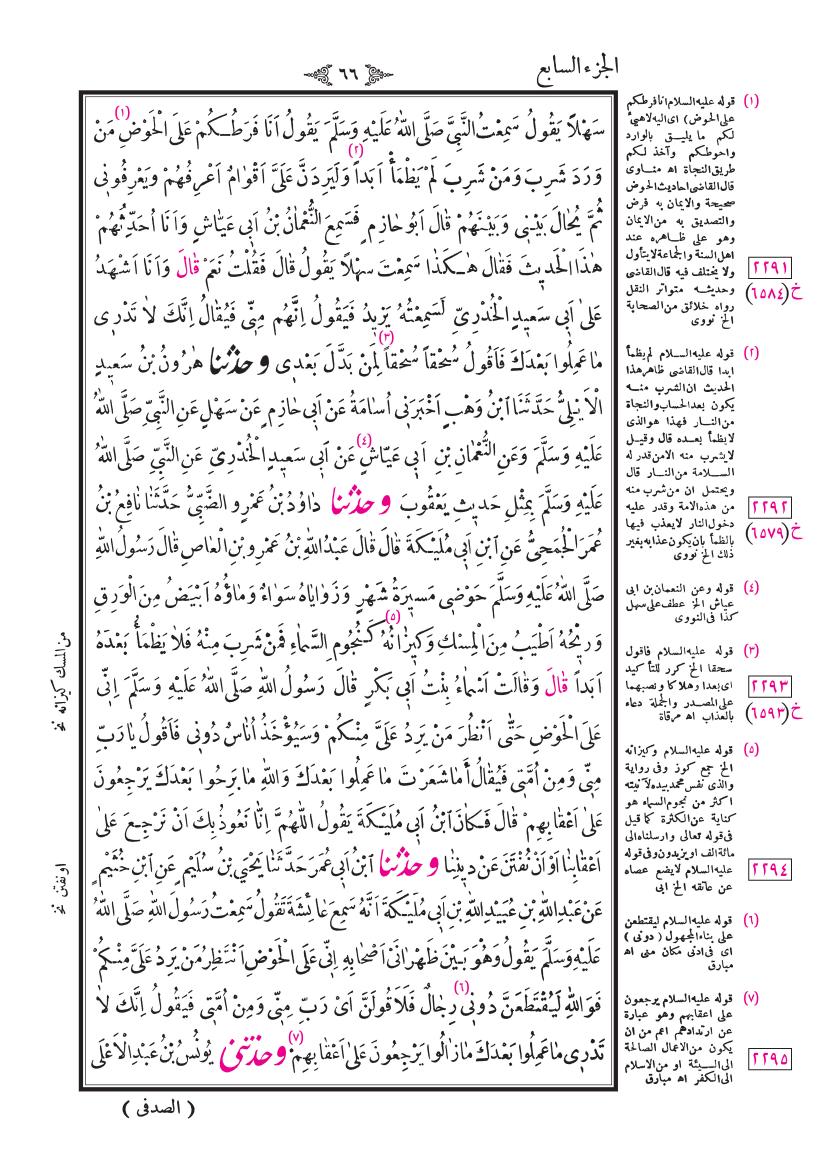 الجزء السابع
٦٦
سَهْلاً يَقُولُ سَمِعْتُ النَّبِىَّ صَلَّى اللهُ عَلَيْهِ وَسَلَّمَ يَقُولُ اَنَا فَرَطُكُمْ عَلَى الْحَوْضِ (١) مَنْ
وَرَدَ شَرِبَ وَمَنْ شَرِبَ لَمْ يَظْمَأْ (٢) اَبَداً وَلَيَرِدَنَّ عَلَىَّ اَقْوَامٌ اَعْرِفُهُمْ وَيَعْرِفُونِى
ثُمَّ يُحَالُ بَيْنِى وَبَيْنَهُمْ قَالَ اَبُو حَازِمٍ فَسَمِعَ النُّعْمَانُ بْنُ اَبِى عَيَّاشٍ وَاَنَا اُحَدِّثُهُمْ
هٰذَا الْحَدِيثَ فَقَالَ هٰكَذَا سَمِعْتَ سَهْلاً يَقُولُ قَالَ فَقُلْتُ نَعَمْ قَالَ وَاَنَا اَشْهَدُ
عَلىٰ اَبِى سَعِيدٍ الْخُدْرِىِّ لَسَمِعْتُهُ يَزِيدُ فَيَقُولُ اِنَّهُمْ مِنِّى فَيُقَالُ اِنَّكَ لاَ تَدْرِى
مَا عَمِلُوا بَعْدَكَ فَاَقُولُ سُحْقاً سُحْقاً (٣) لِمَنْ بَدَّلَ بَعْدِى وحدثنا هٰرُونُ بْنُ سَعِيدٍ
الْاَيْلِىُّ حَدَّثَنَا ابْنُ وَهْبٍ اَخْبَرَنِى اُسَامَةُ عَنْ اَبِى حَازِمٍ عَنْ سَهْلٍ عَنِ النَّبِىِّ صَلَّى اللهُ
عَلَيْهِ وَسَلَّمَ وَعَنِ النُّعْمَانِ بْنِ اَبِى عَيَّاشٍ (٤) عَنْ اَبِى سَعِيدٍ الْخُدْرِىِّ عَنِ النَّبِىِّ صَلَّى اللهُ
عَلَيْهِ وَسَلَّمَ بِمِثْلِ حَدِيثِ يَعْقُوبَ وحدثنا دَاوُدُ بْنُ عَمْرٍو الضَّبِّىُّ حَدَّثَنَا نَافِعُ بْنُ
عُمَرَ الْجُمَحِىُّ عَنِ ابْنِ اَبِى مُلَيْكَةَ قَالَ قَالَ عَبْدُ اللهِ بْنُ عَمْرِو بْنِ الْعَاصِ قَالَ رَسُولُ اللهِ
صَلَّى اللهُ عَلَيْهِ وَسَلَّمَ حَوْضِى مَسِيرَةُ شَهْرٍ وَزَوَايَاهُ سَوَاءٌ وَمَاؤُهُ اَبْيَضُ مِنَ الْوَرِقِ
وَرِيحُهُ اَطْيَبُ مِنَ الْمِسْكِ وَكِيزَانُهُ (٥) كَنُجُومِ السَّمَاءِ فَمَنْ شَرِبَ مِنْهُ فَلاَ يَظْمَأُ بَعْدَهُ
اَبَداً قَالَ وَقَالَتْ اَسْمَاءُ بِنْتُ اَبِى بَكْرٍ قَالَ رَسُولُ اللهِ صَلَّى اللهُ عَلَيْهِ وَسَلَّمَ اِنِّى
عَلَى الْحَوْضِ حَتّٰى اَنْظُرَ مَنْ يَرِدُ عَلَىَّ مِنْكُمْ وَسَيُؤْخَذُ اُنَاسٌ دُونِى فَاَقُولُ يَا رَبِّ
مِنِّى وَمِنْ اُمَّتِى فَيُقَالُ أَمَا شَعَرْتَ مَا عَمِلُوا بَعْدَكَ وَاللهِ مَا بَرِحُوا بَعْدَكَ يَرْجِعُونَ
عَلىٰ اَعْقَابِهِمْ قَالَ فَكَانَ ابْنُ اَبِى مُلَيْكَةَ يَقُولُ اللّٰهُمَّ اِنَّا نَعُوذُ بِكَ اَنْ نَرْجِعَ عَلىٰ
اَعْقَابِنَا اَوْ اَنْ نُفْتَنَ عَنْ دِينِنَا وحدثنا ابْنُ اَبِى عُمَرَ حَدَّثَنَا يَحْيَى بْنُ سُلَيْمٍ عَنِ ابْنِ خُثَيْمٍ
عَنْ عَبْدِ اللهِ بْنِ عُبَيْدِ اللهِ بْنِ اَبِى مُلَيْكَةَ اَنَّهُ سَمِعَ عَائِشَةَ تَقُولُ سَمِعْتُ رَسُولَ اللهِ صَلَّى اللهُ
عَلَيْهِ وَسَلَّمَ يَقُولُ وَهُوَ بَيْنَ ظَهْرَانَىْ اَصْحَابِهِ اِنِّى عَلَى الْحَوْضِ اَنْتَظِرُ مَنْ يَرِدُ عَلَىَّ مِنْكُمْ
فَوَاللهِ لَيُقْتَطَعَنَّ دُونِى (٦) رِجَالٌ فَلَاَقُولَنَّ اَىْ رَبِّ مِنِّى وَمِنْ اُمَّتِى فَيَقُولُ اِنَّكَ لاَ
تَدْرِى مَا عَمِلُوا بَعْدَكَ مَا زَالُوا يَرْجِعُونَ عَلىٰ اَعْقَابِهِمْ (٧) وحدثنى يُونُسُ بْنُ عَبْدِ الْاَعْلَى
( الصدفى )
(١) قوله عليه السلام انا فرطكم
على الحوض) اى اليه لاهيئ
لكم ما يليق بالوارد
واحوطكم وآخذ لكم
طريق النجاة اه مناوى
قال القاضى احاديث الحوض
صحيحة والايمان به فرض
والتصديق به من الايمان
وهو على ظاهره عند
اهل السنة والجماعة لا يتأول
ولا يختلف فيه قال القاضى
وحديثه متواتر النقل
رواه خلائق من الصحابة
الخ نووى
(٢) قوله عليه السلام لم يظمأ
ابدا قال القاضى ظاهر هذا
الحديث ان الشرب منه
يكون بعد الحساب والنجاة
من النار فهذا هو الذى
لا يظمأ بعده قال وقيل
لا يشرب منه الا من قدر له
السلامة من النار قال
ويحتمل ان من شرب منه
من هذه الامة وقدر عليه
دخول النار لا يعذب فيها
بالظمأ بان يكون عذابه بغير
ذلك الخ نووى
(٤) قوله وعن النعمان بن ابى
عياش الخ عطف على سهل
كذا فى النووى
(٣) قوله عليه السلام فاقول
سحقا الخ كرر للتأكيد
اى بعدا وهلاكا ونصبهما
على المصدر والجملة دعاء
بالعذاب اه مرقاة
(٥) قوله عليه السلام وكيزانه
الخ جمع كوز وفى رواية
والذى نفس محمد بيده لآنيته
اكثر من نجوم السماء هو
كناية عن الكثرة كما قيل
فى قوله تعالى وارسلناه الى
مائة الف او يزيدون وفى قوله
عليه السلام لا يضع عصاه
عن عاتقه الخ ابى
(٦) قوله عليه السلام ليقتطعن
على بناء المجهول ( دونى )
اى فى ادنى مكان منى اه
مبارق
(٧) قوله عليه السلام يرجعون
على اعقابهم وهو عبارة
عن ارتدادهم اعم من ان
يكون من الاعمال الصالحة
الى السيئة او من الاسلام
الى الكفر اه مبارق
٢٢٩١
خ(٦٥٨٤)
٢٢٩٢
خ(٦٥٧٩)
٢٢٩٣
خ(٦٥٩٣)
٢٢٩٤
٢٢٩٥
من المسك كيزانه نخ
او نفتن نخ